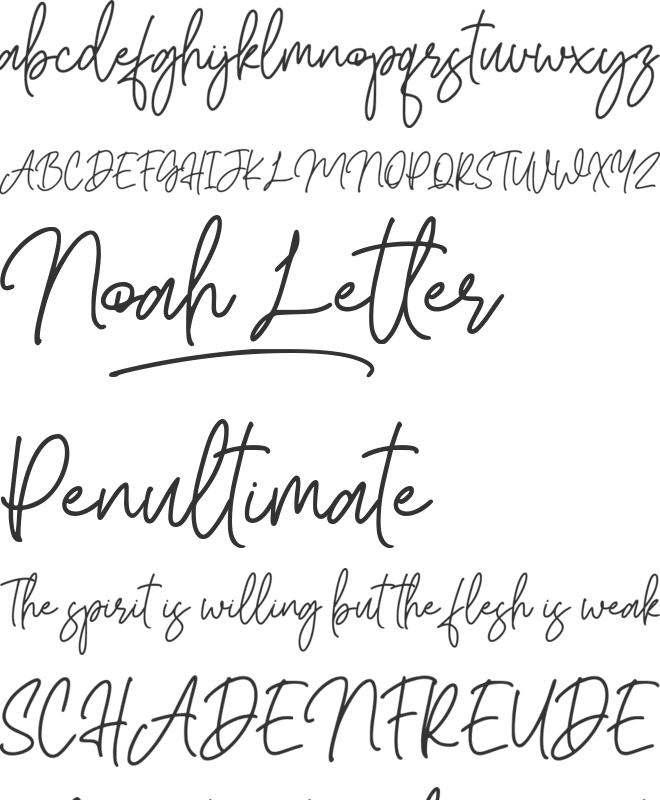 abcdefghijklmnopqrstuvwxyz
ABCDEFGHIJKLMNOPQRSTUVWXYZ
Noah Letter
Penultimate
The spirit is willing but the flesh is weak
SCHADENFREUDE